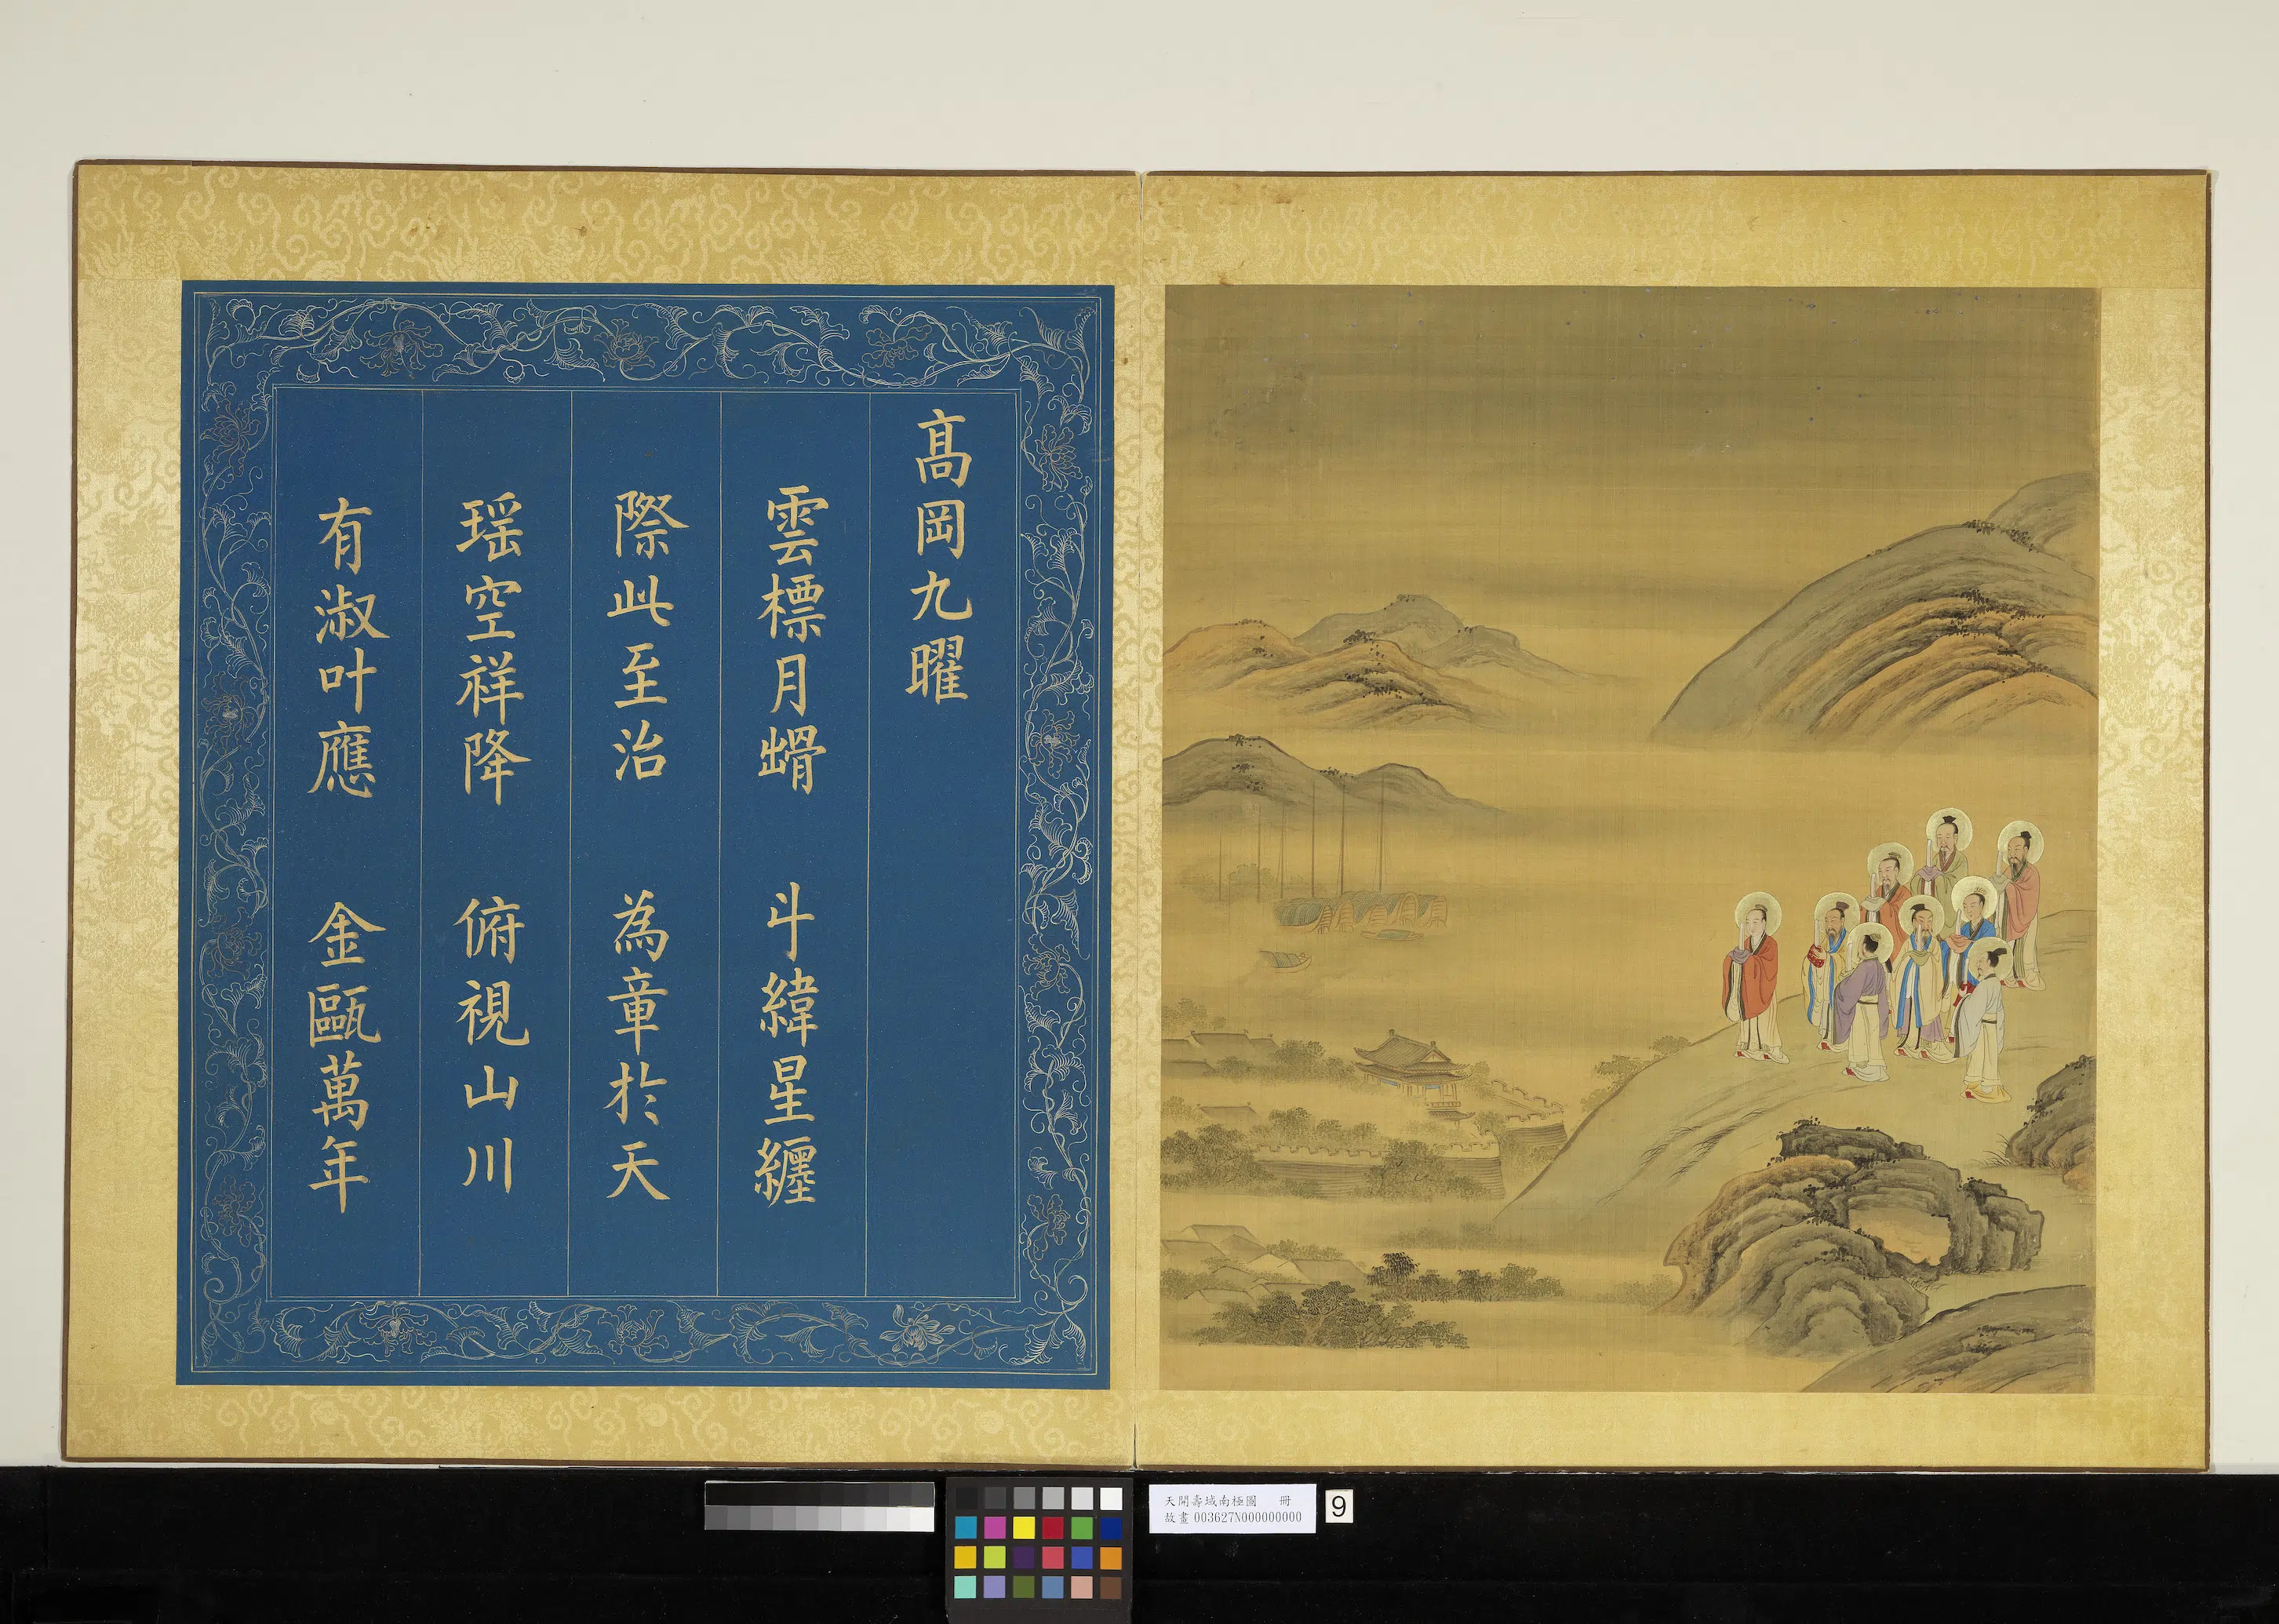 髙岡九曜
雲標月䯝 斗緯星纏
際此至治 為章於天
瑶空祥降 俯視山川
有淑叶應 金甌萬年
天開壽域南極圖 冊
故畫 003627N000000000
9